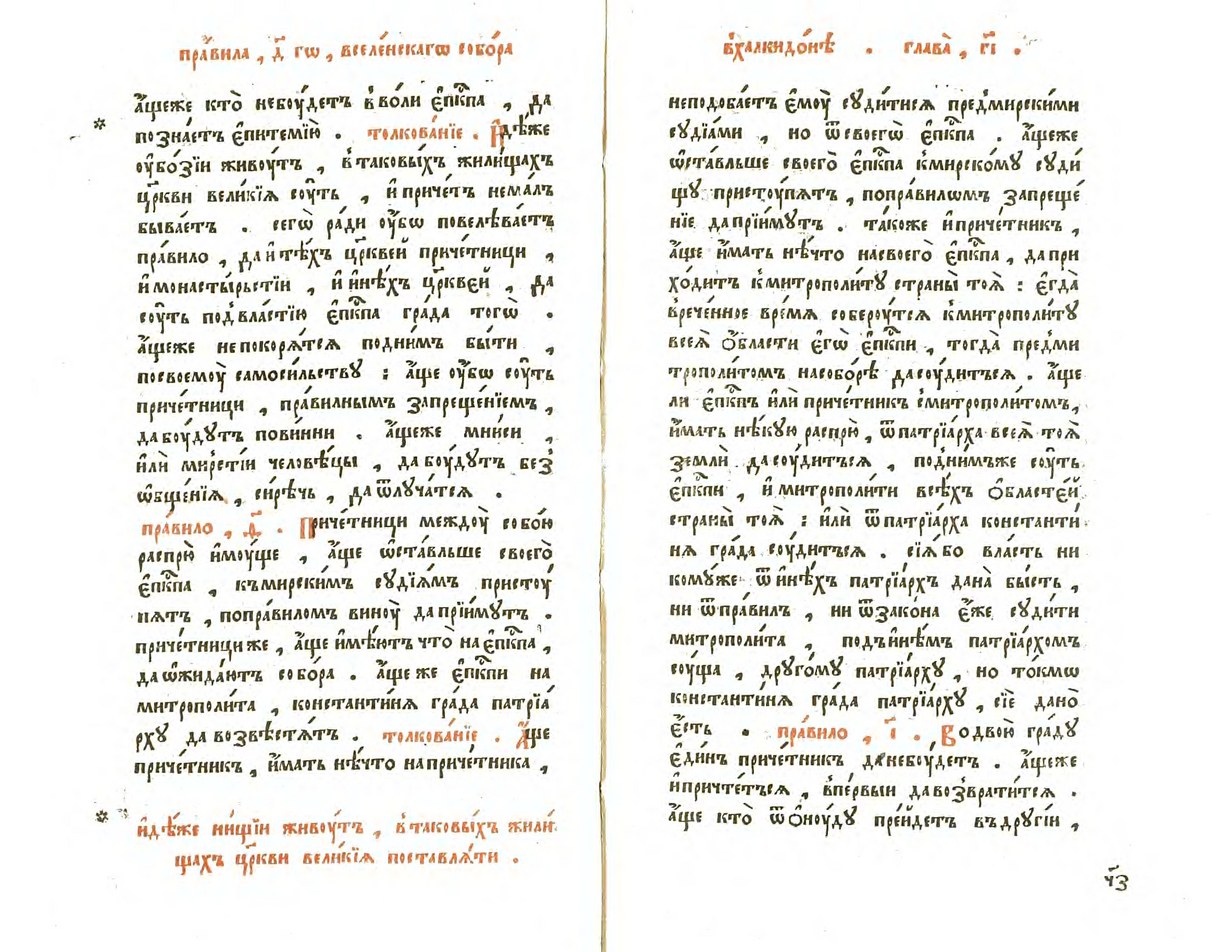 пра́вила , д҃ гѡ , вселе́нскагѡ собо́ра
а҆́щеже кто̀ небоу́детъ в воли є҆пⷭ҇кпа , да
позна́етъ є҆питемі́ю . толкова́нїе . И҆дѣ́же
оу҆бо́зїи живоу́тъ , в таковы́хъ жили́щахъ
цр҃кви вели́кїѧ соу́ть , и҆ при́четъ нема́лъ
быва́етъ . сегѡ̀ ра́ди оу҆́бѡ повелѣва́етъ
пра́вило , да и҆ тѣ́хъ цр҃квей приче́тници ,
и҆ монасты́рьстїи , и҆ и҆нѣ́хъ цр҃квей , да
соу́ть под вла́стїю є҆пⷭ҇кпа гра́да тогѡ̀ .
а҆́щеже не покорѧ́тсѧ подни́мъ бы́ти ,
посвоемоу̀ самоси́льствꙋ : а҆́ще оу҆́бѡ соу́ть
приче́тници , пра́вилнымъ запреще́нїемъ ,
да боу́дутъ пови́нни . а҆́щеже мни́си ,
и҆лѝ ми́рстїи человѣ́цы , да боу́дутъ без̾
ѡ҆бще́нїѧ , си́рѣчь , да ѿлуча́тсѧ .
пра́вило , ѳ҃ . Приче́тници междоу̀ собо́ю
распрю̀ и҆моу́ще , а҆́ще ѡ҆ста́вльше своего̀
є҆пⷭ҇кпа , къ мирски́мъ судїѧ́мъ пристоу́
пѧтъ , поправиломъ виноу̀ да прїи́мꙋтъ .
приче́тници же , а҆́ще и҆мѣ́ютъ что̀ на є҆пⷭ҇кпа ,
да ѡ҆жида́ютъ собо́ра . а҆́ще же є҆пⷭ҇кпи на
митрополи́та , константи́нѧ гра́да патрїа́
рхꙋ да возвѣстѧ́тъ . толкова́нїе . А҆́ще
приче́тникъ , и҆́мать нѣ́что на приче́тника ,
и҆дѣ́же ни́щїи живоу́тъ , в таковы́хъ жили́
щахъ цр҃кви вели́кїѧ поставлѧ́ти .
в халкидо́нѣ . глава̀ , г҃і .
неподоба́етъ є҆моу̀ суди́тисѧ пред̾мирскими
судїа́ми , но ѿ своегѡ̀ є҆пⷭ҇кпа . а҆́щеже
ѡ҆ста́вльше своего̀ є҆пⷭ҇кпа к мирско́мꙋ суди́
щꙋ пристоу́пѧтъ , поправилѡмъ запреще́
нїе да прїи́мꙋтъ . та́коже и҆ приче́тникъ ,
а҆́ще и҆́мать нѣ́что на своего̀ є҆пⷭ҇кпа , да при
хо́дитъ к митрополи́тꙋ страны̀ тоѧ̀ : є҆гда̀
в рече́нное вре́мѧ собероу́тсѧ к митрополи́тꙋ
всеѧ̀ ѻ҆́бласти є҆гѡ̀ є҆пⷭ҇кпи , тогда̀ пред̾ми
трополи́томъ насобо́рѣ да соу́дитъсѧ . а҆́ще
ли є҆пⷭ҇кпъ и҆лѝ приче́тник с митрополи́томъ ,
и҆́мать нѣ́кую распрю̀ , ѿ патрїа́рха всеѧ̀ тоѧ̀
землѝ да соу́дитъсѧ , под ни́мъже соу́ть
є҆пⷭ҇кпи , и҆ митрополи́ти всѣ́хъ ѻ҆бласте́й
страны̀ тоѧ̀ : и҆лѝ ѿ патрїа́рха константи́
нѧ гра́да соу́дитъсѧ . сїѧ́ бо вла́сть ни
комꙋ́же ѿ и҆нѣ́хъ патрїа́рхъ дана̀ бы́сть ,
ни ѿ пра́вилъ , ни ѿ зако́на є҆́же суди́ти
митрополи́та , подъ и҆нѣ́мъ патрїа́рхомъ
соу́ща , друго́мꙋ патрїа́рхꙋ , но то́кмѡ
константи́нѧ гра́да патрїа́рхꙋ , сїѐ дано̀
є҆́сть . пра́вило , і҃ . Во двою̀ гра́дꙋ
є҆ди́нъ приче́тник да небоу́детъ . а҆́щеже
и҆ причте́тьсѧ , в пе́рвыи да возврати́тсѧ .
а҆́ще кто̀ ѿѻ҆ноу́дꙋ пре́йдетъ въ дру́гїи ,
ч҃з